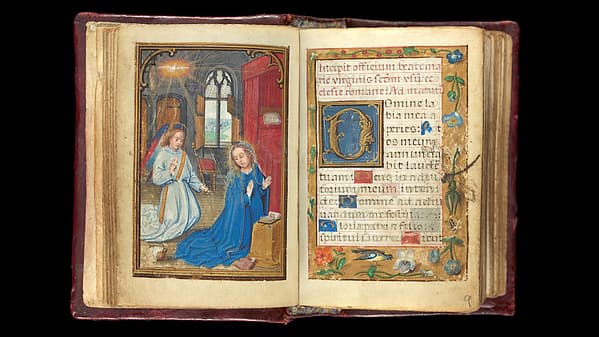 Incipit officium beate ma
rie virginis sedm usū ec
clesie romane: Ad matuti
Domine la
bia mea a
peries: Et
os meum
annuncia
bit laudē
tuam: Deus in adiu
torium meum inten
de: Domine ad adiu
vandum me festina
Gloria patri et filio
spiritui sancto: Sicut
9